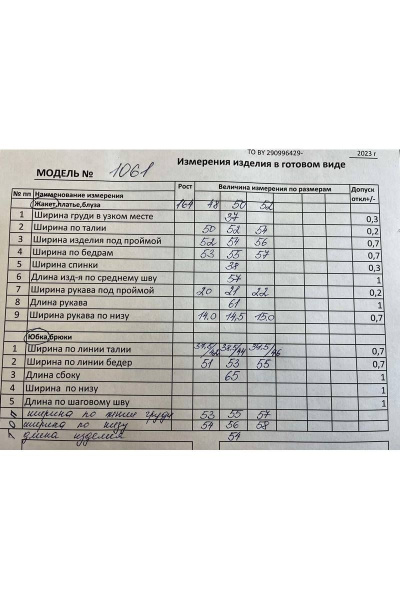 ТО BY 290996429- 2023 г
Измерения изделия в готовом виде
МОДЕЛЬ № 1061
№ пп Наименование измерения Рост Величина измерения по размерам Допуск откл+/-
Жакет,платье,блуза 164 48 50 52
1 Ширина груди в узком месте 37 0,3
2 Ширина по талии 50 52 54 0,2
3 Ширина изделия под проймой 52 54 56 0,7
4 Ширина по бедрам 53 55 57 0,7
5 Ширина спинки 38 0,3
6 Длина изд-я по среднему шву 57 1
7 Ширина рукава под проймой 20 21 22 0,2
8 Длина рукава 61 1
9 Ширина рукава по низу 14.0 14,5 15,0 0,7
Юбка,брюки
1 Ширина по линии талии 0,7
2 Ширина по линии бедер 51 53 55 0,7
3 Длина сбоку 65 1
4 Ширина по низу 1
5 Длина по шаговому шву 1
ширина по линии груди 53 55 57
ширина по низу 54 56 58
длина изделия 54